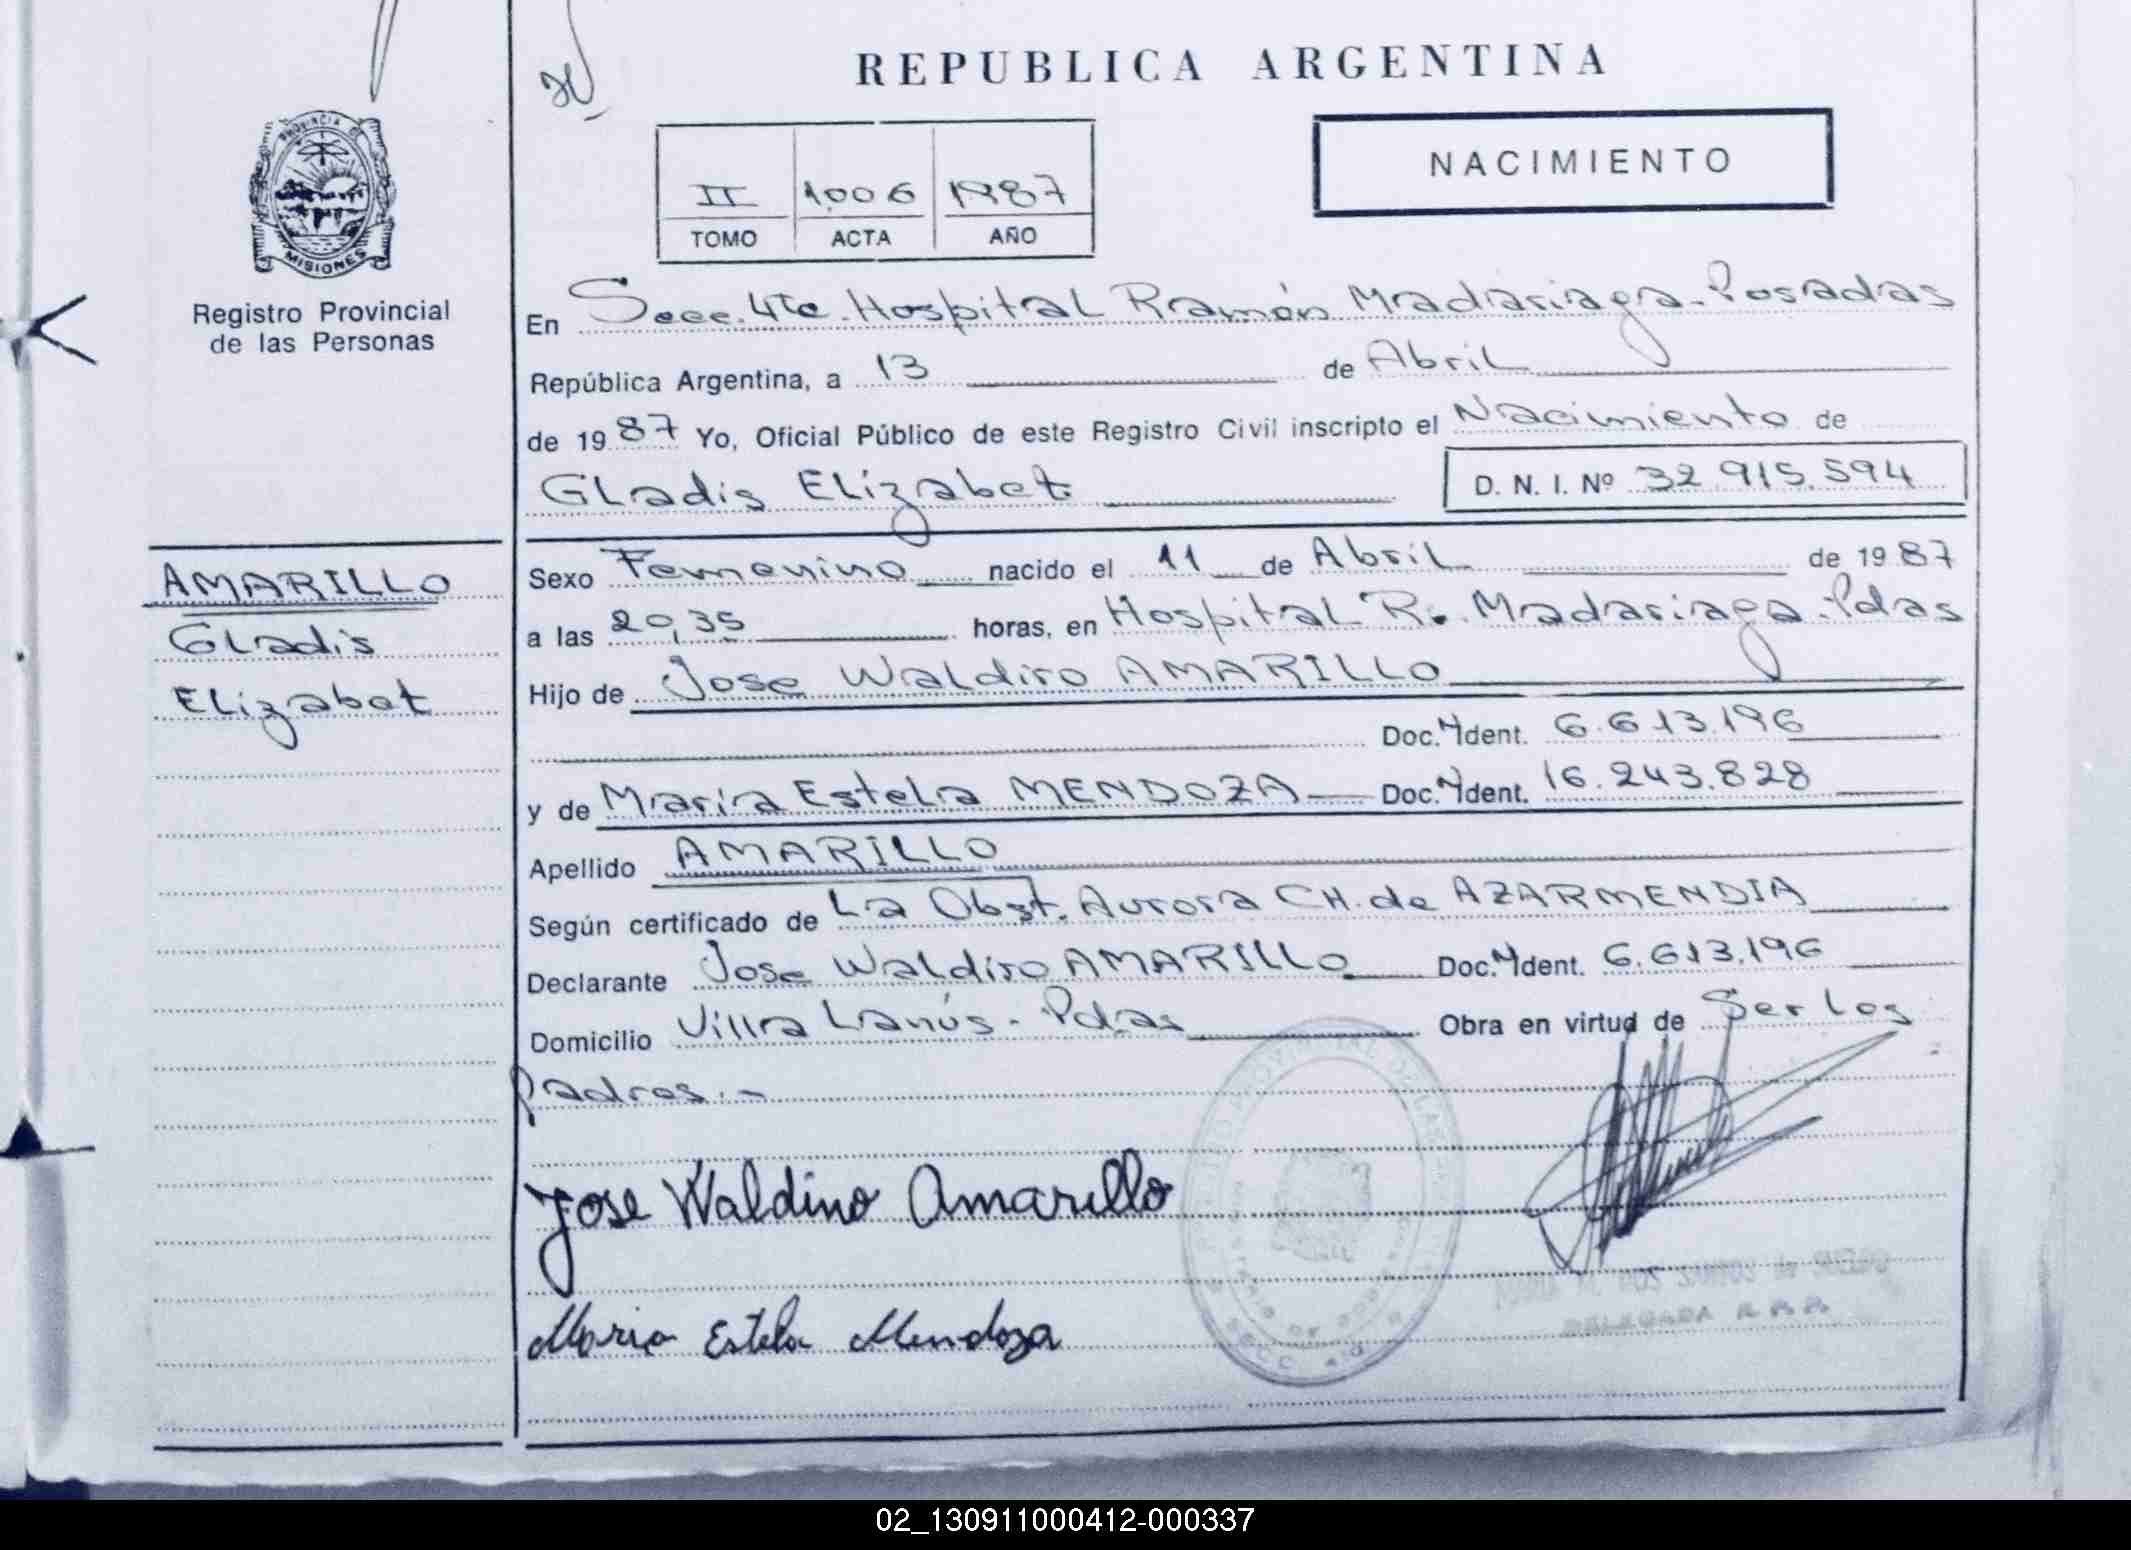 REPUBLICA ARGENTINA
PROVINCIA DE
MISIONES
Registro Provincial
de las Personas
II 1.006 1987
TOMO ACTA AÑO
NACIMIENTO
En Secc. 4ta. Hospital Ramón Madariaga - Posadas
República Argentina, a 13 de Abril
de 1987 Yo, Oficial Público de este Registro Civil inscripto el Nacimiento de
Gladis Elizabet D. N. I. Nº 32.915.594
AMARILLO
Gladis
Elizabet
Sexo Femenino nacido el 11 de Abril de 1987
a las 20,35 horas, en Hospital R. Madariaga - Pdas
Hijo de Jose Waldino AMARILLO
Doc. Ident. 6.613.196
y de María Estela MENDOZA Doc. Ident. 16.243.828
Apellido AMARILLO
Según certificado de La Obst. Aurora CH. de AZARMENDIA
Declarante Jose Waldino AMARILLO Doc. Ident. 6.613.196
Domicilio Villa Lanús - Pdas Obra en virtud de Ser los
padres.-
Jose Waldino Amarillo
Maria Estela Mendoza
DELEGADA R. P. P.
02_130911000412-000337